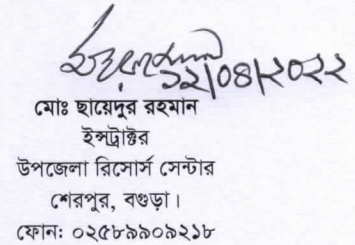 ১২/০৪/২০২২
মোঃ ছায়েদুর রহমান
ইন্সট্রাক্টর
উপজেলা রিসোর্স সেন্টার
শেরপুর, বগুড়া।
ফোনঃ ০২৫৮৯৯০৯২১৮